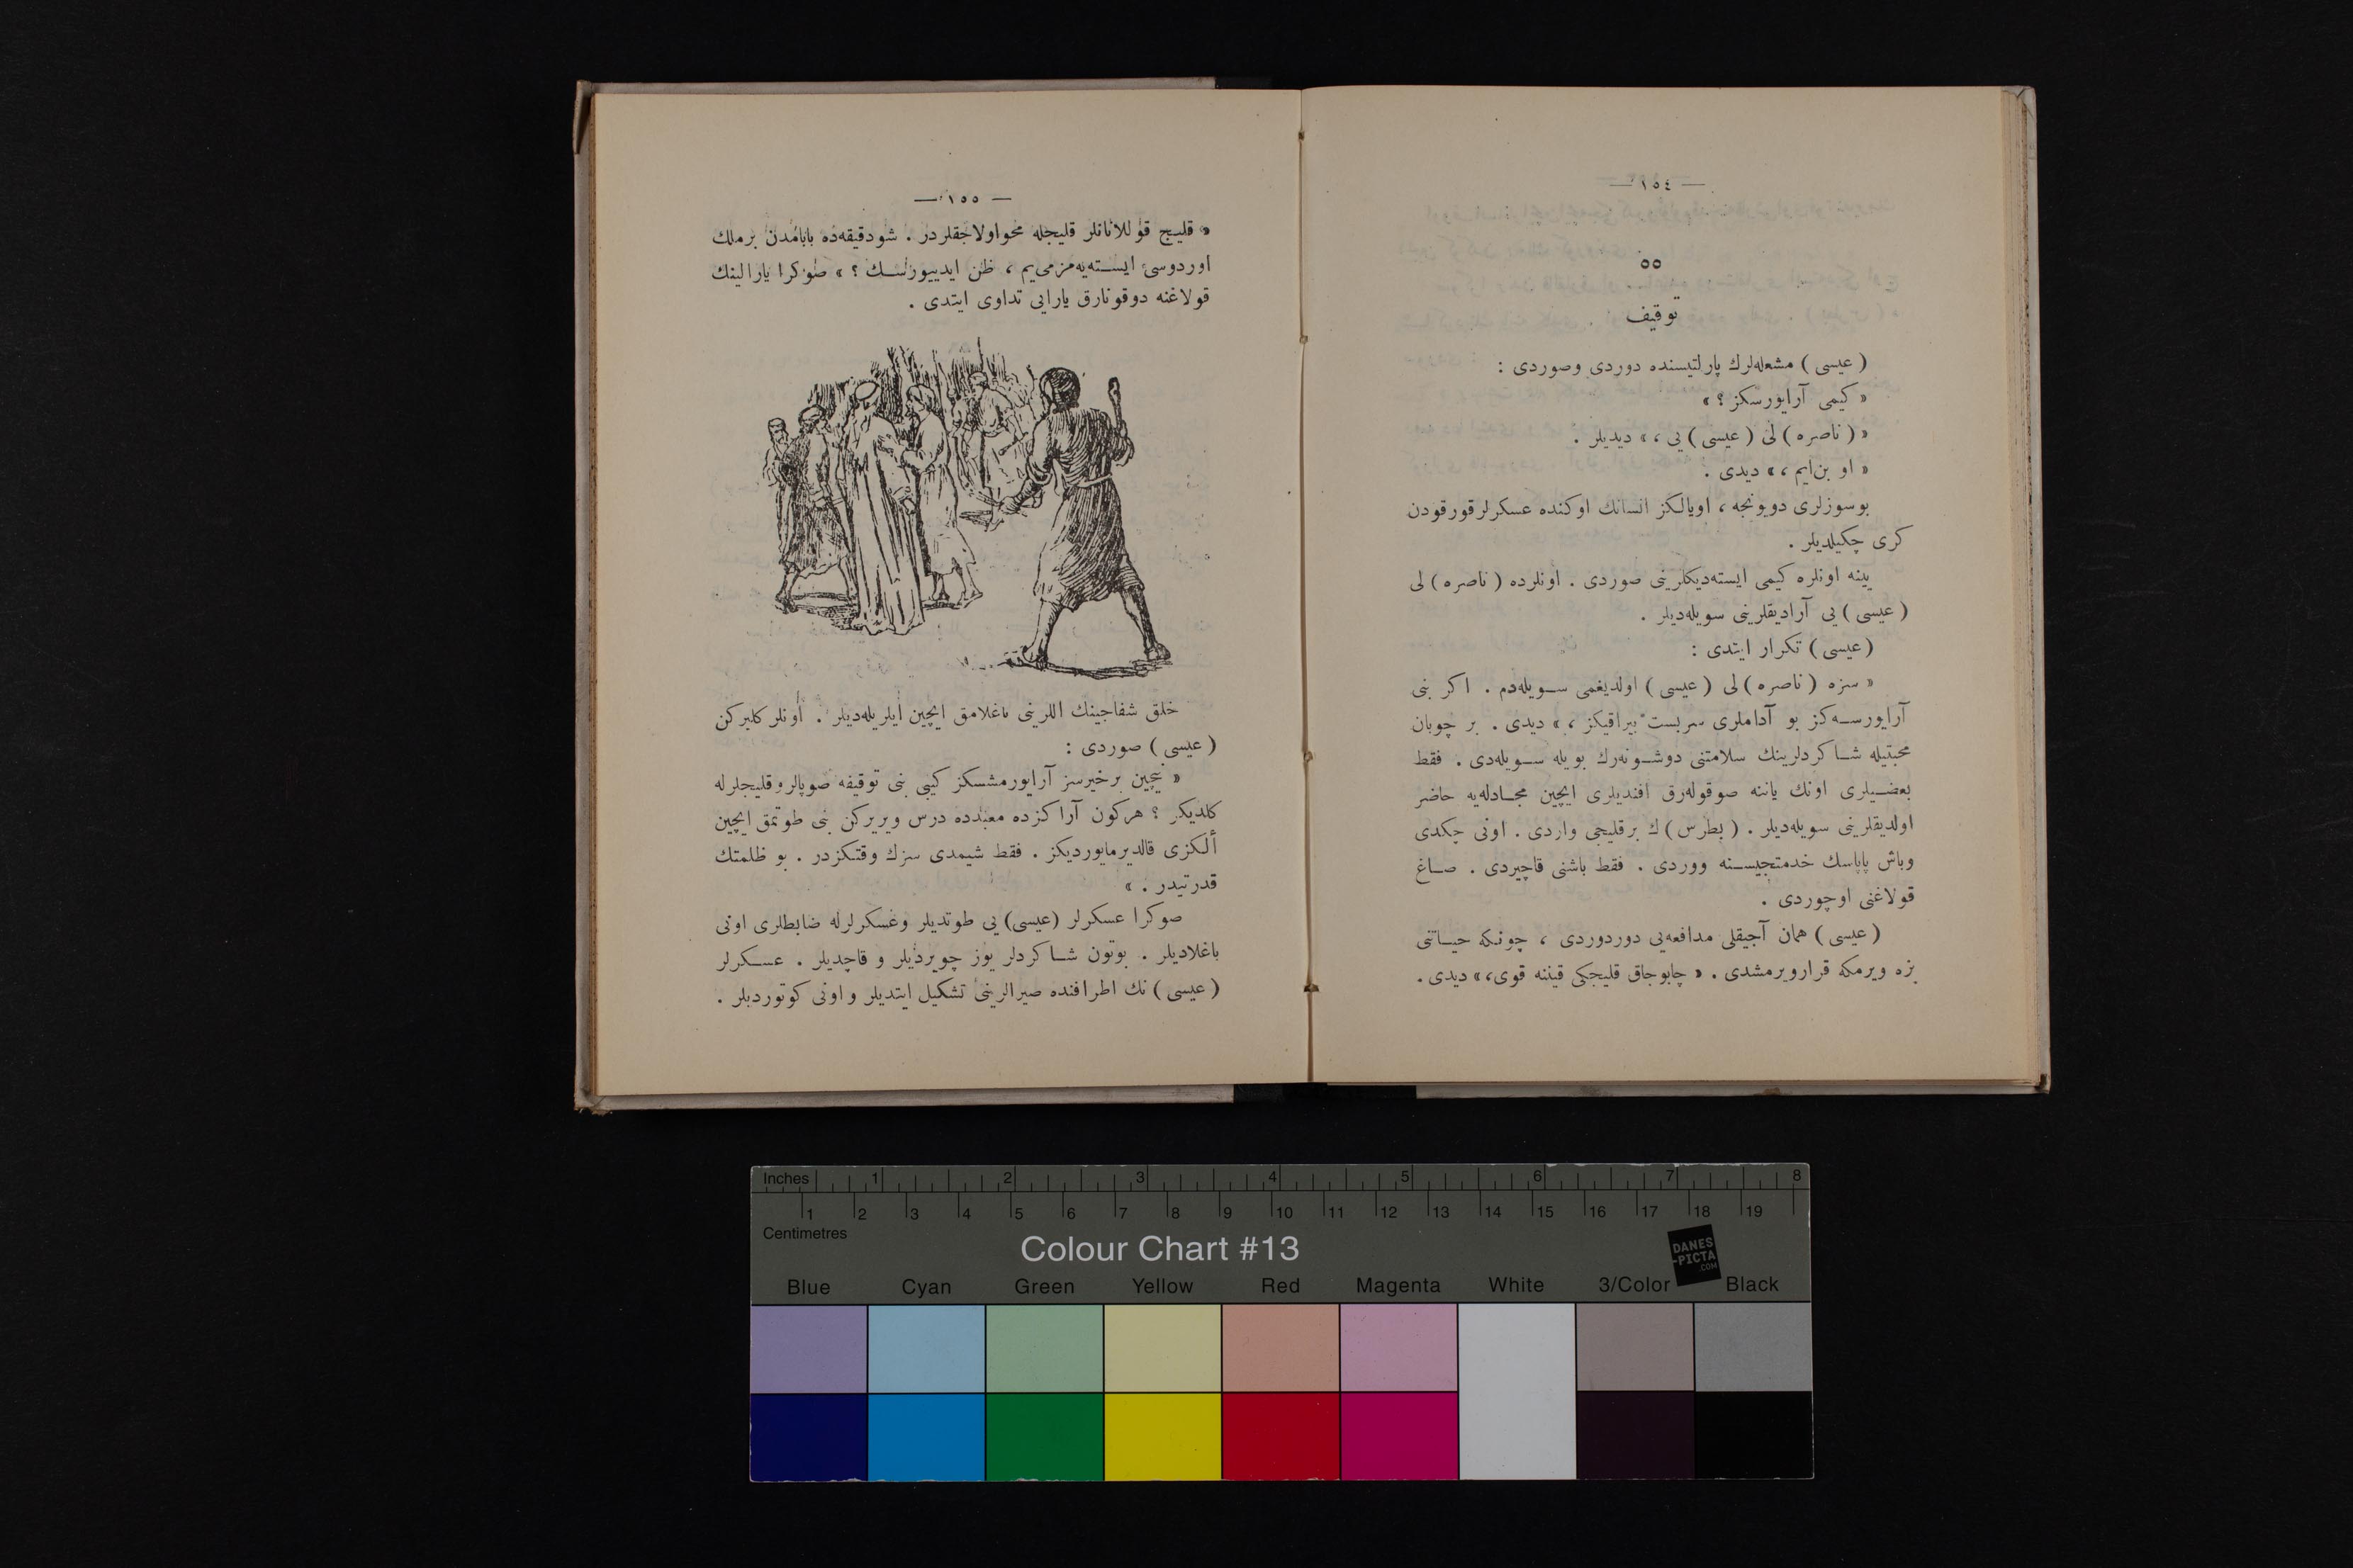 — ١٥٤ —
٥٥
توقيف
( عيسى ) مشعله‌لرك پارلتيسنده دوردى وصوردى :
« كيمى آرايورسكز ؟ »
« ( ناصره ) لى ( عيسى ) يى ، » ديديلر .
« او بن‌ايم ، » ديدى .
بوسوزلرى دويونجه ، اويالكز انسانك اوكنده عسكرلرقورقودن
كرى چكيلديلر .
يينه اونلره كيمى ايسته‌ديكلرينى صوردى . اونلرده ( ناصره ) لى
( عيسى ) يى آراديقلرينى سويله‌ديلر .
( عيسى ) تكرار ايتدى :
« سزه ( ناصره ) لى ( عيسى ) اولديغمى سويله‌دم . اكر بنى
آرايورسه‌كز بو آداملرى سربست بيراقيكز ، » ديدى . بر چوبان
محبتيله شاكردلرينك سلامتنى دوشونه‌رك بويله سويله‌دى . فقط
بعضيلرى اونك ياننه صوقوله‌رق افنديلرى ايچين مجادله‌يه حاضر
اولديقلرينى سويله‌ديلر . ( پطرس ) ك برقليجى واردى . اونى چكدى
وباش پاپاسك خدمتجيسنه ووردى . فقط باشنى قاچيردى . صاغ
قولاغنى اوچوردى .
( عيسى ) همان آجيقلى مدافعه‌يى دوردوردى ، چونكه حياتنى
بزه ويرمكه قرارويرمشدى . « چابوجاق قليجكى قيننه قوى، » ديدى .
— ١٥٥ —
« قليج قوللانانلر قليجله محواولاجقلردر . شودقيقه‌ده بابامدن برملك
اوردوسى ايسته‌يه‌مزمى‌يم ، ظن ايدييورسك ؟ » صوكرا يارالينك
قولاغنه دوقونارق يارايى تداوى ايتدى .
خلق شفاجينك اللرينى باغلامق ايچين ايلريله‌ديلر . اونلر كليركن
( عيسى ) صوردى :
« نيچين برخيرسز آرايورمشسكز كيبى بنى توقيفه صوپالروقليجلرله
كلديكز ؟ هركون آراكزده معبدده درس ويريركن بنى طوتمق ايچين
ألكزى قالديرمايورديكز . فقط شيمدى سزك وقتكزدر . بو ظلمتك
قدرتيدر . »
صوكرا عسكرلر ( عيسى ) يى طوتديلر وعسكرلرله ضابطلرى اونى
باغلاديلر . بوتون شاكردلر يوز چويرديلر و قاچديلر . عسكرلر
( عيسى ) نك اطرافنده صيرالرينى تشكيل ايتديلر و اونى كوتورديلر .
Inches 1 2 3 4 5 6 7 8
1 2 3 4 5 6 7 8 9 10 11 12 13 14 15 16 17 18 19
Centimetres
Colour Chart #13
DANES
-PICTA
.COM
Blue Cyan Green Yellow Red Magenta White 3/Color Black